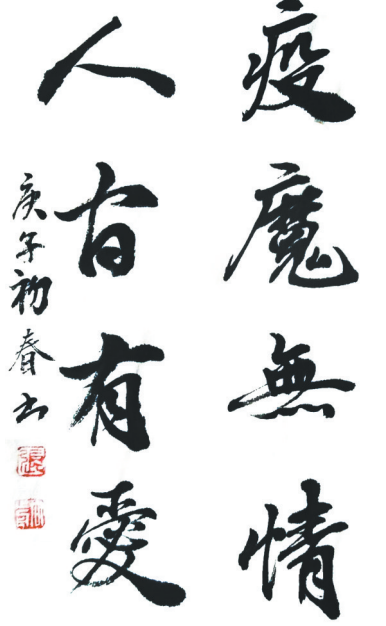 疫魔無情
人皆有愛
庚子初春书